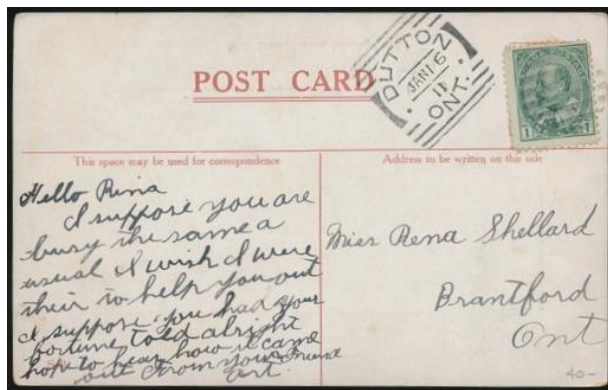 POST CARD
DUTTON
JAN 16
11
ONT.
1
This space may be used for correspondence
Address to be written on this side
Hello Rina
I suppose you are
busy the same a
usual I wish I were
their to help you out
I suppose you had your
fortune told alright
hope to hear how it came
out From your Friend
Art.
Miss Rena Shellard
Brantford
Ont
40-